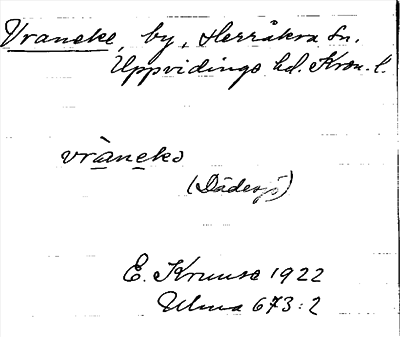 Vraneke, by, Herråkra sn.
Uppvidinge hd. Kron. l.
vràneka
(Dädesjö)
E. Kruuse 1922
Ulma 673:2